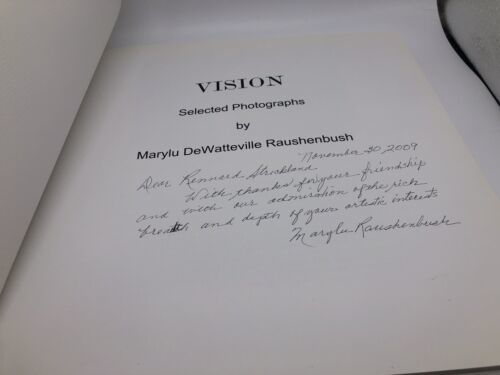 VISION
Selected Photographs
by
Marylu DeWatteville Raushenbush
November 20, 2009
Dear Rennard Strickland
With thanks for your friendship
and with our admiration of the rich
breadth and depth of your artistic interests
Marylu Raushenbush